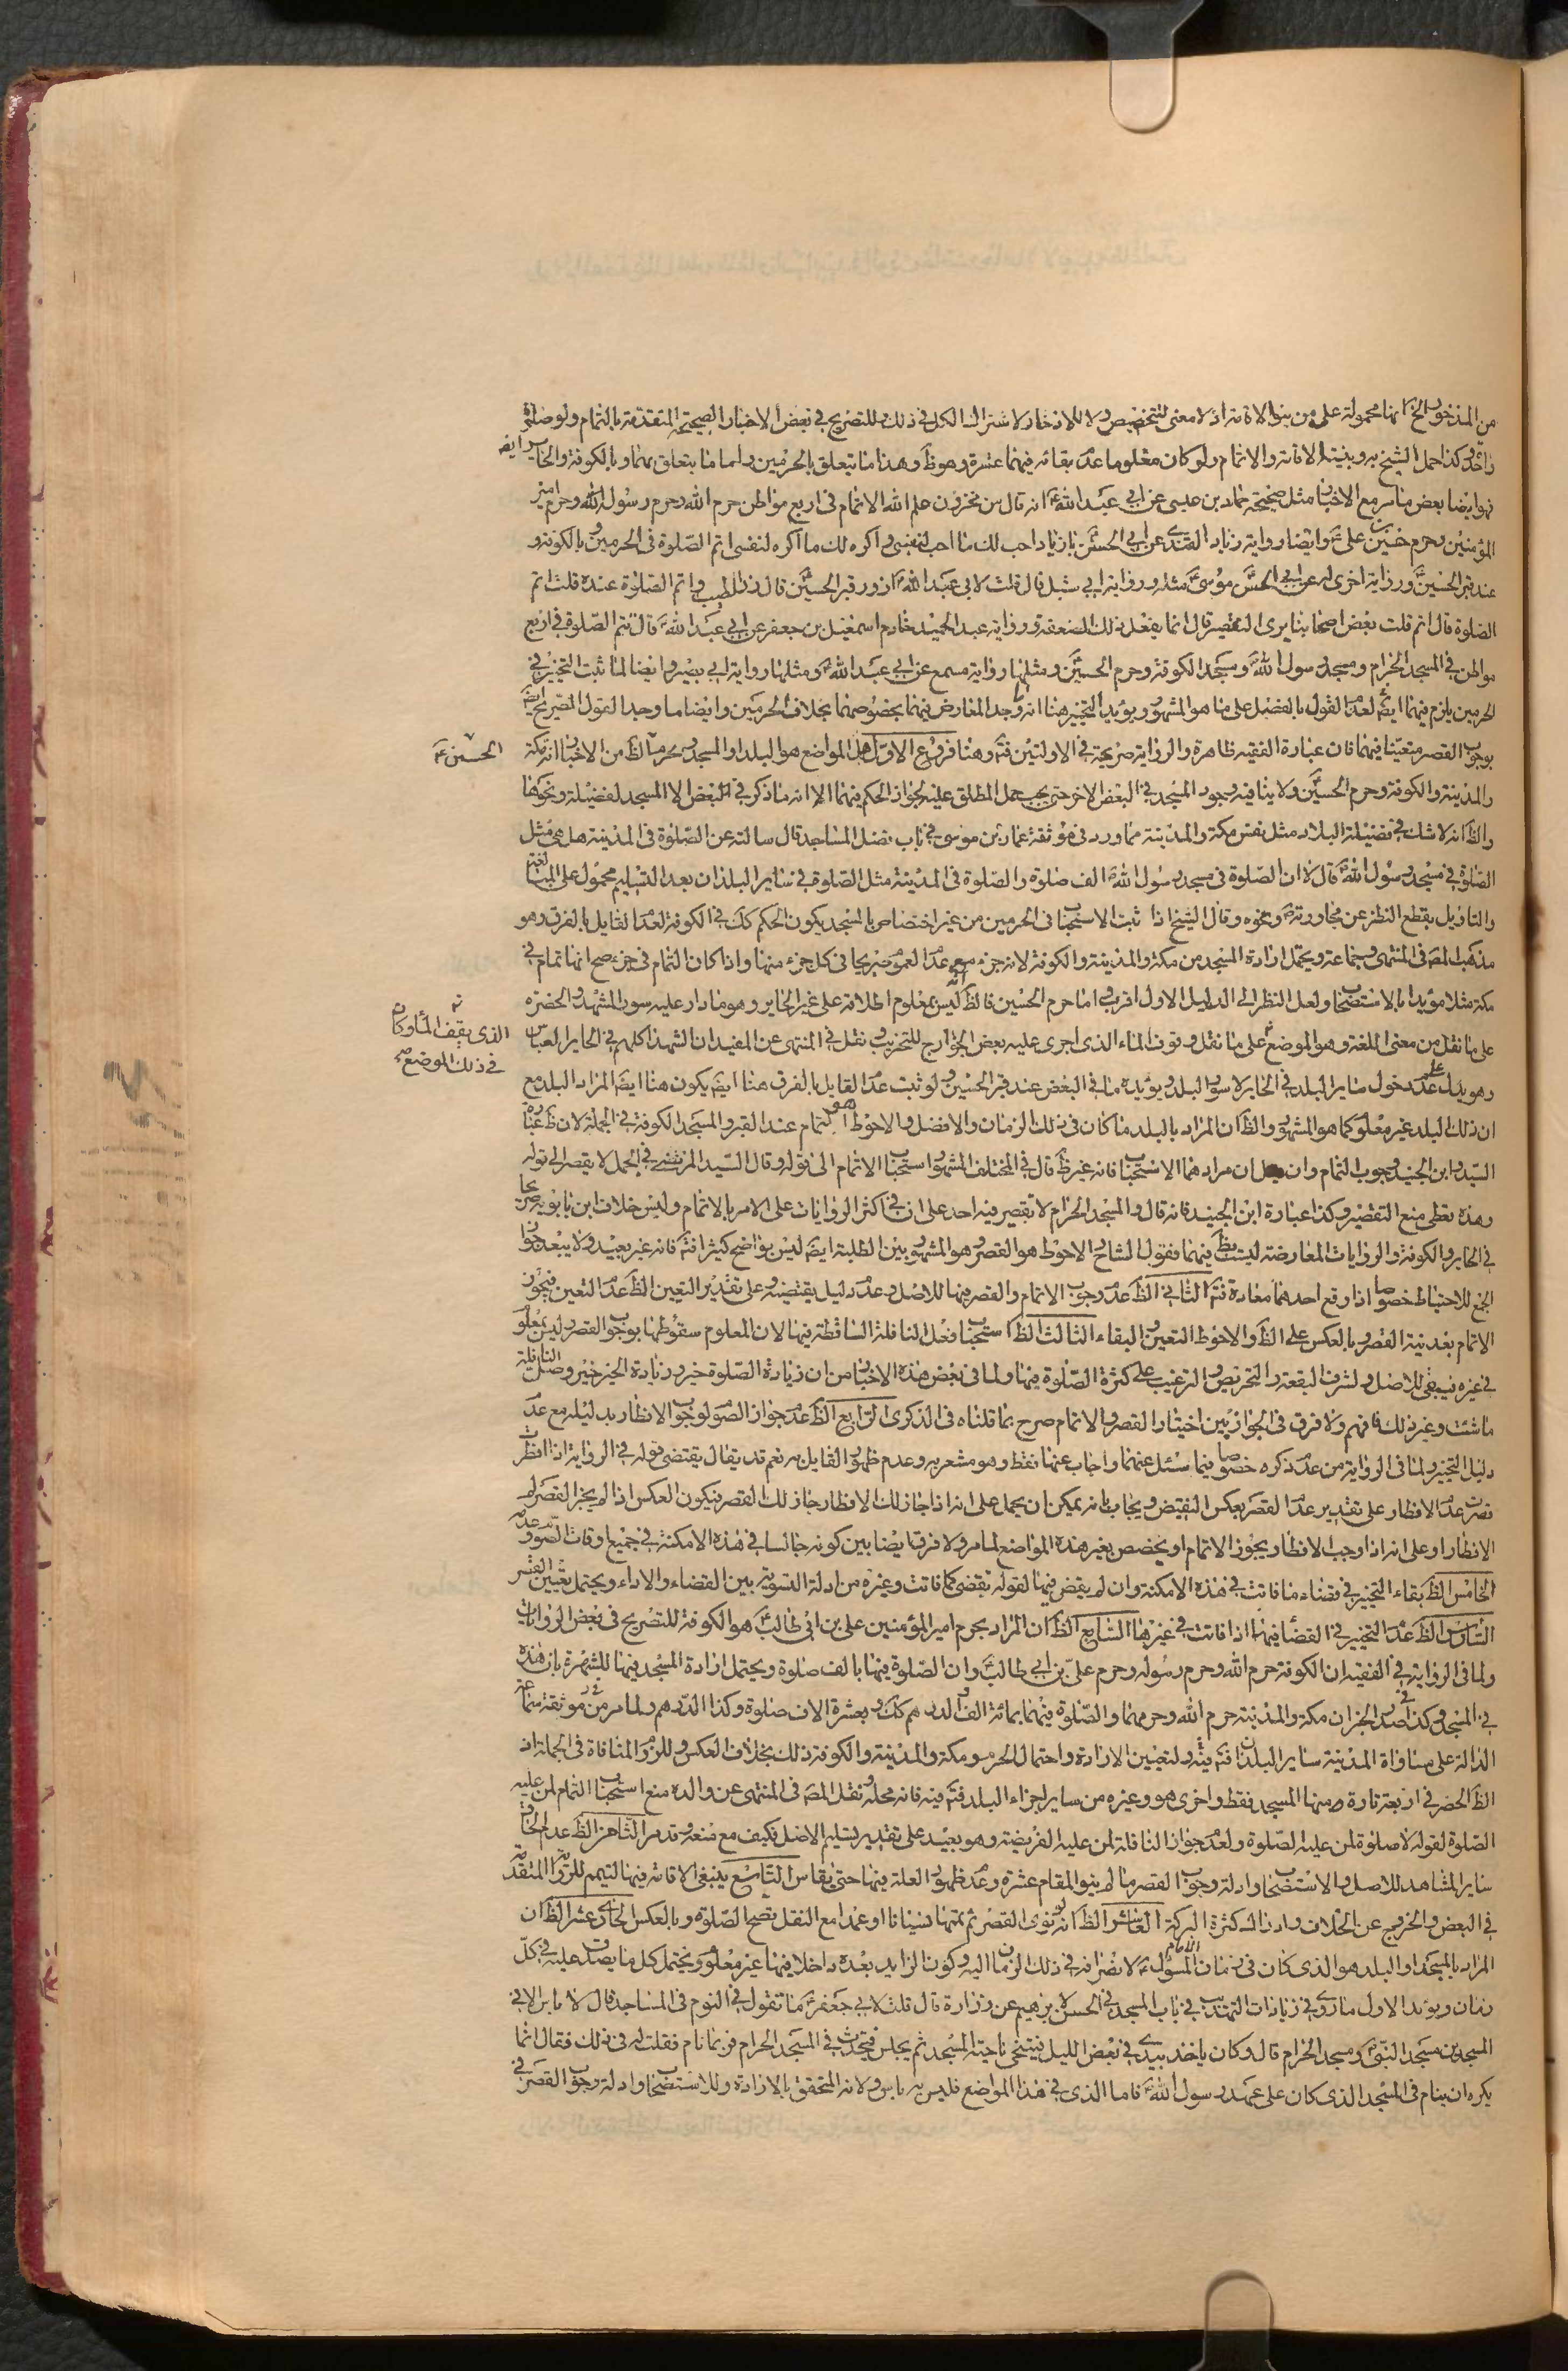 من المذخور الخ انما محمولة على من ينوي الاقامة اذ لا معنى للتخصيص ولا للاذخار لاشتراك الكل في ذلك وللتصريح في بعض الاخبار الصحيحة المتقدمة بالتمام ولو صلوة
واحدة وكذا حمل الشيخ بنية الاقامة والاتمام ولو كان معلوما عدم بقائه فيهما عشرة وهو ظ وهذا ما يتعلق بالحرمين واما ما يتعلق بهما وبالكوفة والحاير ايضا
فهو ايضا بعض ما مر مع الاخبار مثل صحيحة حماد بن عيسى عن ابي عبد الله ع انه قال من مخزون علم الله الاتمام في اربع مواطن حرم الله وحرم رسول الله وحرم امير
المؤمنين وحرم حسين بن علي ع وايضا رواية زياد القندي عن ابي الحسن ع يا زياد احب لك ما احب لنفسي واكره لك ما اكره لنفسي اتم الصلوة في الحرمين وبالكوفة و
عند قبر الحسين ع ورواية اخرى له عن ابي الحسن موسى ع مثله ورواية ابي شبل قال قلت لابي عبد الله ع ازور قبر الحسين ع قال زر الطيب واتم الصلوة عنده قلت اتم
الصلوة قال اتم قلت بعض اصحابنا يرى التقصير قال انما يفعل ذلك الضعفة ورواية عبد الحميد خادم اسمعيل بن جعفر عن ابي عبد الله ع قال تتم الصلوة في اربع
مواطن في المسجد الحرام ومسجد رسول الله ومسجد الكوفة وحرم الحسين ع ومثلها رواية مسمع عن ابي عبد الله ع ومثلها رواية ابي بصير وايضا لما ثبت التخيير في
الحرمين يلزم فيهما ايضا لعدم القول بالفصل على ما هو المشهور ويؤيد التخيير هنا انه وجد المعارض فيهما بخصوصهما بخلاف الحرمين وايضا ما وجد القول الصريح
بوجوب القصر متعينا فيهما فان عبارة الفقيه ظاهرة والرواية صريحة في الاولتين فت وهنا فروع الاول هل المواضع هو البلد او المسجد الظ من الاخبار انه مكة
الحسين ع
والمدينة والكوفة وحرم الحسين ع ولا ينافيه وجود المسجد في البعض الاخر حتى يجب حمل المطلق عليه لجواز الحكم فيهما الا انه ما ذكر في البعض الا المسجد لفضيلة ونحوها
والظ انه لا شك في فضيلة البلاد مثل نفس مكة والمدينة مما ورد في موثقة عمار بن موسى في باب فضل المساجد قال سالته عن الصلوة في المدينة هل هي مثل
الصلوة في مسجد رسول الله ص قال لا ان الصلوة في مسجد رسول الله ص الف صلوة والصلوة في المدينة مثل الصلوة في ساير البلدان بعد التسليم محمول على المبالغة
والتاويل بقطع النظر عن مجاورته ونحوه وقال الشيخ اذا ثبت الاستحباب في الحرمين من غير اختصاص بالمسجد يكون الحكم كك في الكوفة لعدم القايل بالفرق وهو
مذهب المص في المنتهى وجماعة ويحتمل ارادة المسجد من مكة والمدينة والكوفة لانه جزء مع عدم العموم صريحا في كل جزء منها واذا كان التمام في جزء صح انها تمام في
مكة مثلا مؤيدا بالاستصحاب ولعل النظر الى الدليل الاول اقرب واما حرم الحسين فالظ انه ليس بمعلوم اطلاقه على غير الحاير وهو ما دار عليه سور المشهد والحضرة
على ما نقل من معنى اللغة وهو الموضع على ما نقل وقوف الماء الذي اجرى عليه بعض الخوارج للتخريب ونقل في المنتهى عن المفيد ان الشهداء كلهم في الحاير الا العباس
الذي يقف الماء وكان
في ذلك الموضع صح
وهو يدل على عدم دخول ساير البلد في الحاير لا سور البلد ويؤيده ما في البعض عند قبر الحسين ع ولو ثبت عدم القايل بالفرق هنا ايضا يكون هنا ايضا المراد البلد مع
ان ذلك البلد غير معلوم كما هو المشهور والظ ان المراد بالبلد ما كان في ذلك الزمان والافضل والاحوط هو التمام عند القبر والمسجد الكوفة في الجملة لان ظ عبارة
السيد وابن الجنيد وجوب التمام وان قيل ان مرادهما الاستحباب فانه غير ظ قال في المختلف المشهور استحباب الاتمام الى قوله وقال السيد المرتضى في الجمل لا يقصر الى قوله
وهذه يعطي منع التقصير وكذا عبارة ابن الجنيد فانه قال والمسجد الحرام لا تقصير فيه احد على ان في اكثر الروايات على الامر بالاتمام وليس خلاف ابن بابويه صريحا
في الحاير والكوفة والروايات المعارضة ليست فيهما فقول الشارح الاحوط هو القصر وهو المشهور بين الطلبة ايضا ليس بواضح كثيرا فت فانه غير بعيد ولا يبعد جواز
الجمع للاحتياط خصوصا اذا وقع احدهما معادة فت الثاني الظ عدم وجوب الاتمام والقصر فيها للاصل وعدم دليل يقتضيه وعلى تقدير التعيين الظ عدم التعين فيجوز
الاتمام بعد نية القصر وبالعكس على الظ والاحوط التعيين والبقاء الثالث الظ استحباب فعل النافلة الساقطة فيها لان المعلوم سقوطها بوجوب القصر وليس بمعلوم
في غيره فيبقى للاصل ولشرف البقعة والتحريص والترغيب على كثرة الصلوة فيها ولما في بعض هذه الاخبار من ان زيادة الصلوة خير وزيادة الخير خير وصل النافلة
ما شئت وغير ذلك فافهم ولا فرق في الجواز بين اختيار القصر والاتمام صرح بما قلناه في الذكرى الرابع الظ عدم جواز الصوم لوجوب الافطار بدليله مع عدم
دليل التخيير ولما في الرواية من عدم ذكره خصوصا فيما سئل عنهما واجاب عنها فقط وهو مشعر به وعدم ظهور القايل به نعم قد يقال يقتضي قوله في الرواية اذا افطرت
قصرت عدم الافطار على تقدير عدم القصر بعكس النقيض ويجاب بانه يمكن ان يحمل على انه اذا جاز لك الافطار جاز لك القصر فيكون العكس اذا لم يجز القصر لم
الافطار او على انه اذا وجب الافطار يجوز الاتمام او يخصص بغير هذه المواضع لما مر ولا فرق ايضا بين كونه جالسا في هذه الامكنة في جميع اوقات الصوم وعدمه
الخامس الظ بقاء التخيير في قضاء ما فاتت في هذه الامكنة وان لم يقض فيها لقوله تقضى كما فاتت وغيره من ادلة التسوية بين القضاء والاداء ويحتمل تعين القصر
السادس الظ عدم التخيير في القضاء فيها اذا فاتت في غيرها السابع الظ ان المراد بحرم امير المؤمنين علي بن ابي طالب ع هو الكوفة للتصريح في بعض الروايات
ولما في الرواية في الفقيه ان الكوفة حرم الله وحرم رسوله وحرم علي بن ابي طالب ع وان الصلوة فيها بالف صلوة ويحتمل ارادة المسجد فيها للشهرة بان هذه
في المسجد وكذا في صدر الخبر ان مكة والمدينة حرم الله وحرمهما والصلوة فيهما بمائة الف والدرهم كك وبعشرة الاف صلوة وكذا الدرهم ولما مر من موثقة سماعة
الدالة على مساواة المدينة ساير البلدان فت فيه ولتعيين الارادة واحتمال الحرم ومكة والمدينة والكوفة ذلك بخلاف العكس وللزوم المنافاة في الجملة اذ
الظ الحصر في اربعة تارة ومنها المسجد فقط واخرى هو وغيره من ساير اجزاء البلد فت فيه فانه محله ونقل المص في المنتهى عن والده منع استحباب التمام لمن عليه
الصلوة لقوله لا صلوة لمن عليه الصلوة ولعدم جواز النافلة لمن عليه الفريضة وهو بعيد على تقدير تسليم الاصل فكيف مع منعه وقد مر الثامن الظ عدم الحاق
ساير المشاهد للاصل والاستصحاب وادلة وجوب القصر ما لم ينو المقام عشرة وعدم ظهور العلة فيها حتى يقاس التاسع ينبغي الاقامة فيها لتتم للرواية المتقدمة
في البعض والخروج عن الخلاف وادراك كثرة البركة العاشر الظ انه لو نوى القصر ثم يتمها نسيانا او عمدا مع النقل تصح الصلوة وبالعكس الحادي عشر الظ ان
المراد بالمسجد او البلد هو الذي كان في زمان الامام المسؤل ع لا بضرافه في ذلك الزمان اليه وكون الزايد بعده داخلا فيها غير معلوم ويحتمل كل ما يصدق عليه في كل
زمان ويؤيد الاول ما روي في زيادات التهذيب في باب المسجد في الحسن لابرهيم عن زرارة قال قلت لابي جعفر ع ما تقول في النوم في المساجد قال لا باس الا في
المسجدين مسجد النبي ص ومسجد الحرام قال وكان ياخذ بيدي في بعض الليل فيتنحى ناحية المسجد ثم يجلس فيتحدث في المسجد الحرام فربما نام فقلت له في ذلك فقال انما
يكره ان ينام في المسجد الذي كان على عهد رسول الله ص فاما الذي في هذا المواضع فليس به باس ولانه المتحقق بالارادة وللاستصحاب وادلة وجوب القصر في